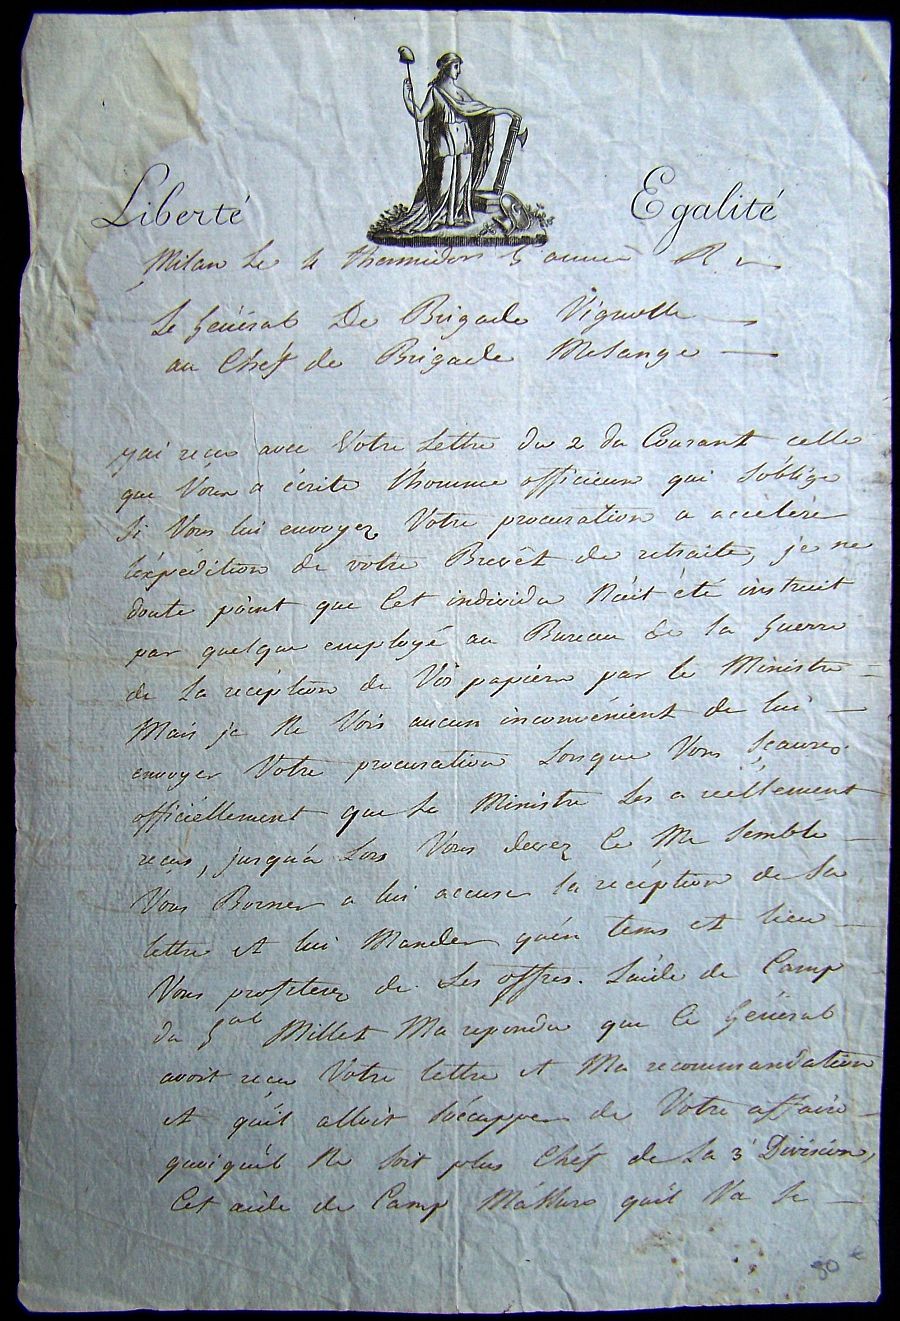 Liberté Egalité
Milan Le 4 thermidor 5 année R.
Le Général De Brigade Vignolle
au Chef de Brigade Mesange
j'ai recu avec Votre Lettre du 2 du Courant celle
que Vous a écrite l'homme officieux qui s'oblige
si Vous lui envoyez Votre procuration a accèlérer
l'expédition de votre Brevêt de retraite, je ne
doute point que Cet individu N'ait été instruit
par quelque employé au Bureau de la Guerre
de la récéption de Vos papiers par le Ministre
Mais je Ne Vois aucun inconvénient de lui
envoyer Votre procuration Lorsque Vous Scaurez
officiéllement que Le Ministre Les a réellement
recus, jusqu'a Lors Vous devez Ce Me Semble
Vous Borner a lui accuser la récéption de Sa
lettre et lui Mander qu'en tems et lieu
Vous profiterez de Ses offres. L'aide de Camp
du Gal Millet M'a repondu que Ce Général
avoit recu Votre lettre et Ma recommandation
et qu'il alloit s'occupper de Votre affaire
quoiqu'il Ne Soit plus Chéf de La 3e Division,
Cet aide de Camp M'assure qu'il Va Se
30 €